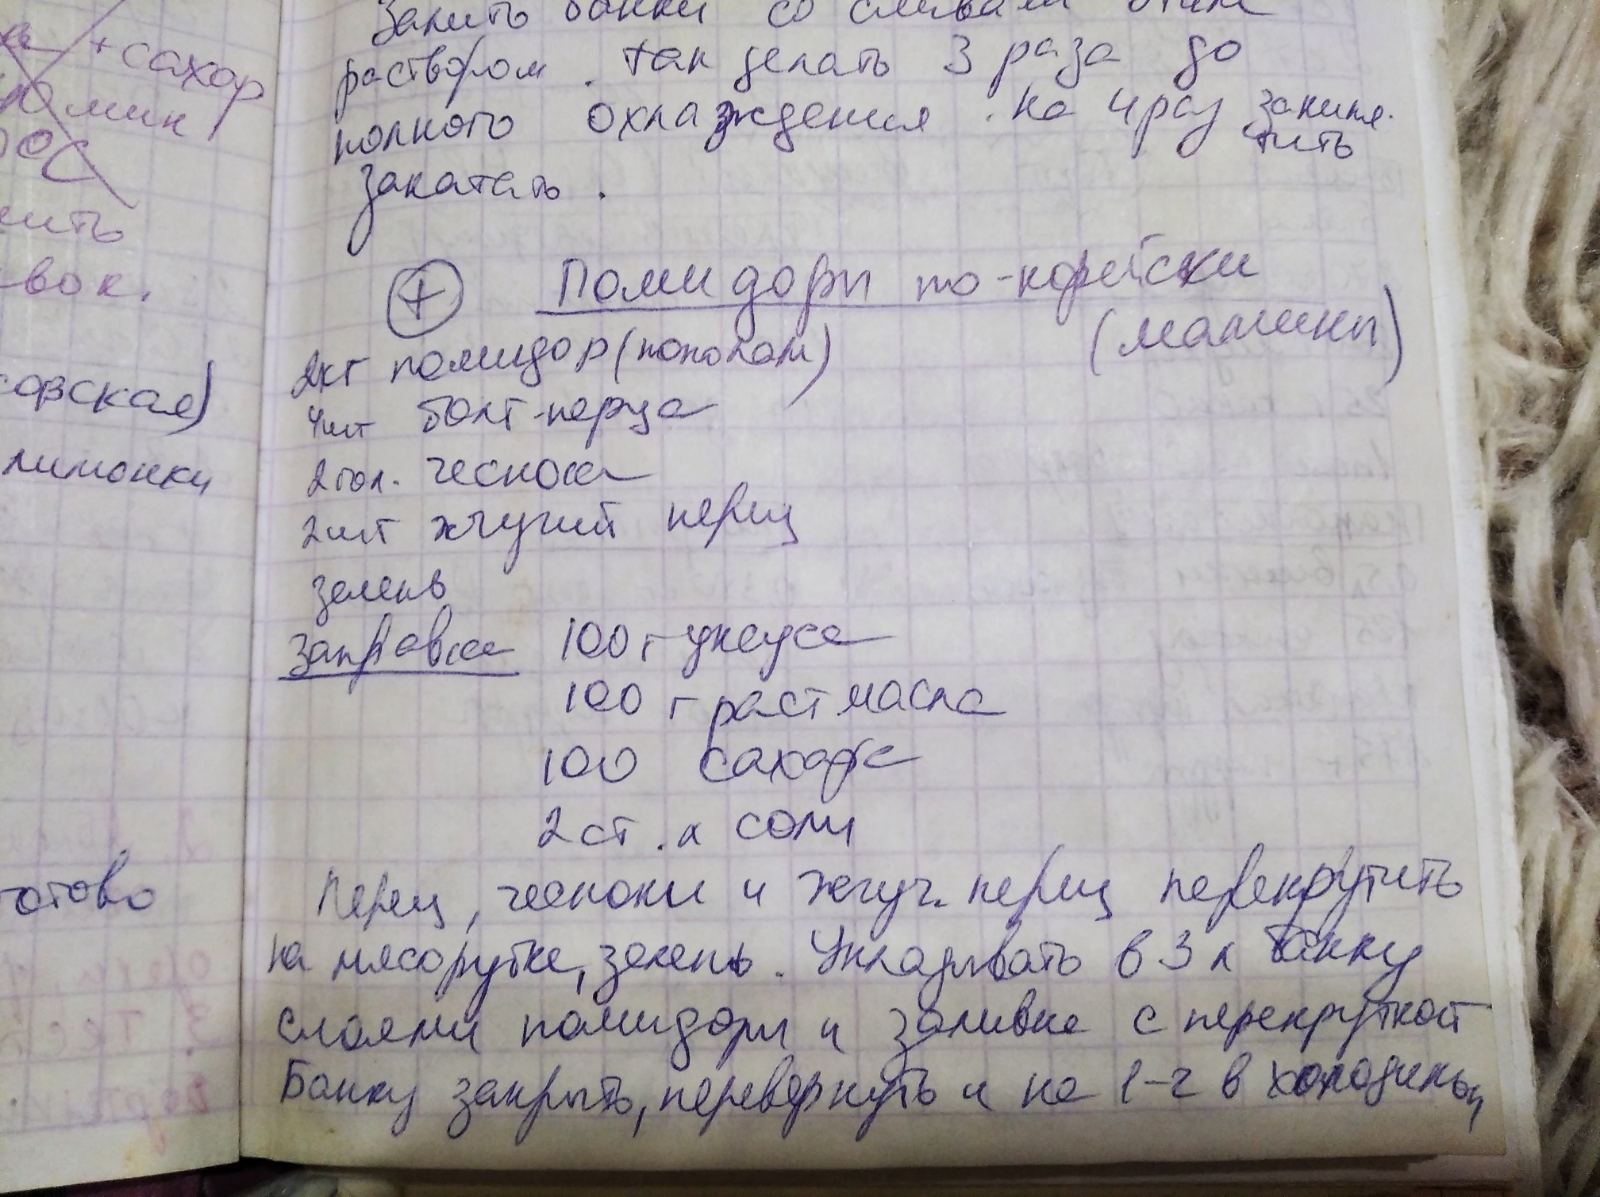 + сахор
мин
ить
вок.
совская)
лимонки
готово
Залить банки со сливами этим
раствором. так делать 3 раза до
полного охлаждения. на 4 раз закипя-
тить
закатать.
+ Помидоры по-корейски
(мамины)
2кг помидор (пополам)
4шт болг. перца
2гол. чеснока
2шт жгучий перец
зелень
заправка 100 г уксуса
100 г раст масла
100 сахара
2 ст. л соли
Перец, чесноки и жгуч. перец перекрутить
на мясорубке, зелень. Укладывать в 3 л банку
слоями помидоры и заливке с перекруткой
Банку закрыть, перевернуть и на 1-2 в холодильн